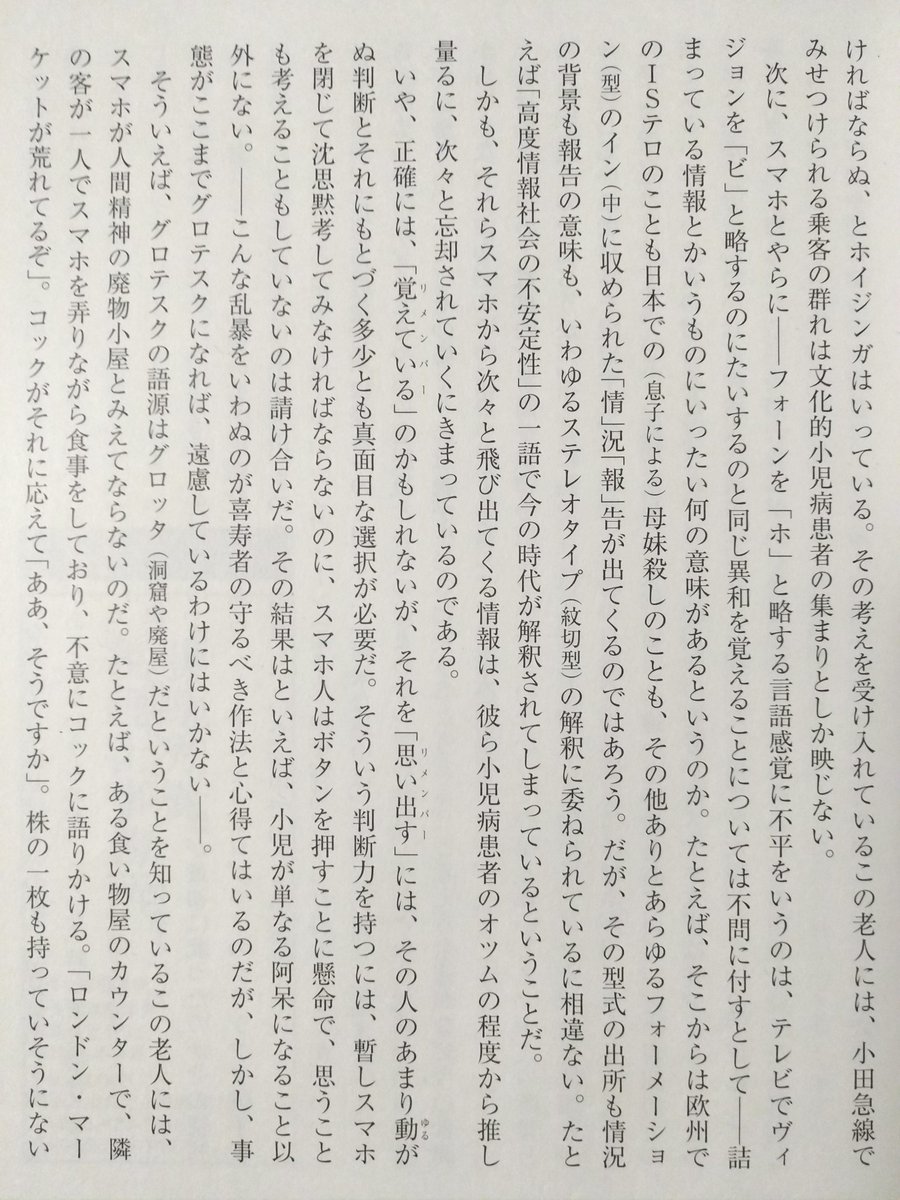 ければならぬ、とホイジンガはいっている。その考えを受け入れているこの老人には、小田急線で
みせつけられる乗客の群れは文化的小児病患者の集まりとしか映じない。
次に、スマホとやらに――フォーンを「ホ」と略する言語感覚に不平をいうのは、テレビでヴィ
ジョンを「ビ」と略するのにたいするのと同じ異和を覚えることについては不問に付すとして――詰
まっている情報とかいうものにいったい何の意味があるというのか。たとえば、そこからは欧州で
のISテロのことも日本での(息子による)母妹殺しのことも、その他ありとあらゆるフォーメーショ
ン(型)のイン(中)に収められた「情」況「報」告が出てくるのではあろう。だが、その型式の出所も情況
の背景も報告の意味も、いわゆるステレオタイプ(紋切型)の解釈に委ねられているに相違ない。たと
えば「高度情報社会の不安定性」の一語で今の時代が解釈されてしまっているということだ。
しかも、それらスマホから次々と飛び出てくる情報は、彼ら小児病患者のオツムの程度から推し
量るに、次々と忘却されていくにきまっているのである。
いや、正確には、「覚えている」のかもしれないが、それを「思い出す」には、その人のあまり動が
ぬ判断とそれにもとづく多少とも真面目な選択が必要だ。そういう判断力を持つには、暫しスマホ
を閉じて沈思黙考してみなければならないのに、スマホ人はボタンを押すことに懸命で、思うこと
も考えることもしていないのは請け合いだ。その結果はといえば、小児が単なる阿呆になること以
外にない。――こんな乱暴をいわぬのが喜寿者の守るべき作法と心得てはいるのだが、しかし、事
態がここまでグロテスクになれば、遠慮しているわけにはいかない――。
そういえば、グロテスクの語源はグロッタ(洞窟や廃屋)だということを知っているこの老人には、
スマホが人間精神の廃物小屋とみえてならないのだ。たとえば、ある食い物屋のカウンターで、隣
の客が一人でスマホを弄りながら食事をしており、不意にコックに語りかける。「ロンドン・マー
ケットが荒れてるぞ」。コックがそれに応えて「ああ、そうですか」。株の一枚も持っていそうにない